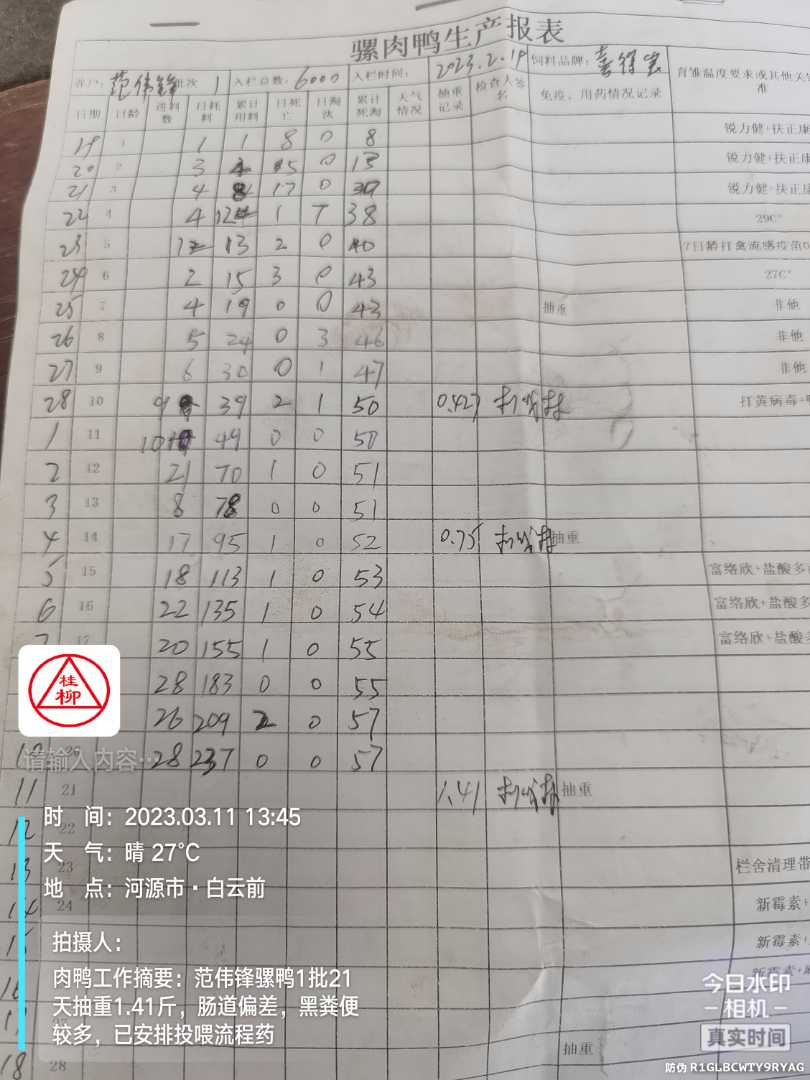 骡肉鸭生产报表
客户: 范伟锋 批次 1 入栏总数: 6000 入栏时间: 2023.2.19 饲料品牌:
日期 日龄 进料数 日耗料 累计用料 日死亡 日淘汰 累计死淘 天气情况 抽重记录 检查人签名 免疫、用药情况记录
19 1 1 1 8 0 8 锐力健+扶正康
20 2 3 4 5 0 13 锐力健+扶正康
21 3 4 8 17 0 30 锐力健+扶正康
22 4 4 12 1 7 38 29C°
23 5 1 13 2 0 40
24 6 2 15 3 0 43 27C°
25 7 4 19 0 0 43 抽重 非他
26 8 5 24 0 3 46 非他
27 9 6 30 0 1 47 非他
28 10 9 39 2 1 50 0.427 打黄病毒+
1 11 10 49 0 0 50
2 12 21 70 1 0 51
3 13 8 78 0 0 51
4 14 17 95 1 0 52 0.75 抽重
5 15 18 113 1 0 53 富络欣+盐酸多
6 16 22 135 1 0 54 富络欣+盐酸多
7 17 20 155 1 0 55 富络欣+盐酸多
28 183 0 0 55
26 209 2 0 57
10 20 28 237 0 0 57
11 21 1.41 抽重
12 22
13 23 栏舍清理带
14 24 新霉素+
15 新霉素+
16 新霉素+
17 27
18 28 抽重
桂柳
请输入内容…
时 间: 2023.03.11 13:45
天 气: 晴 27℃
地 点: 河源市·白云前
拍摄人:
肉鸭工作摘要: 范伟锋骡鸭1批21
天抽重1.41斤，肠道偏差，黑粪便
较多，已安排投喂流程药
今日水印
相机
真实时间
防伪 R1GLBCWTY9RYAG